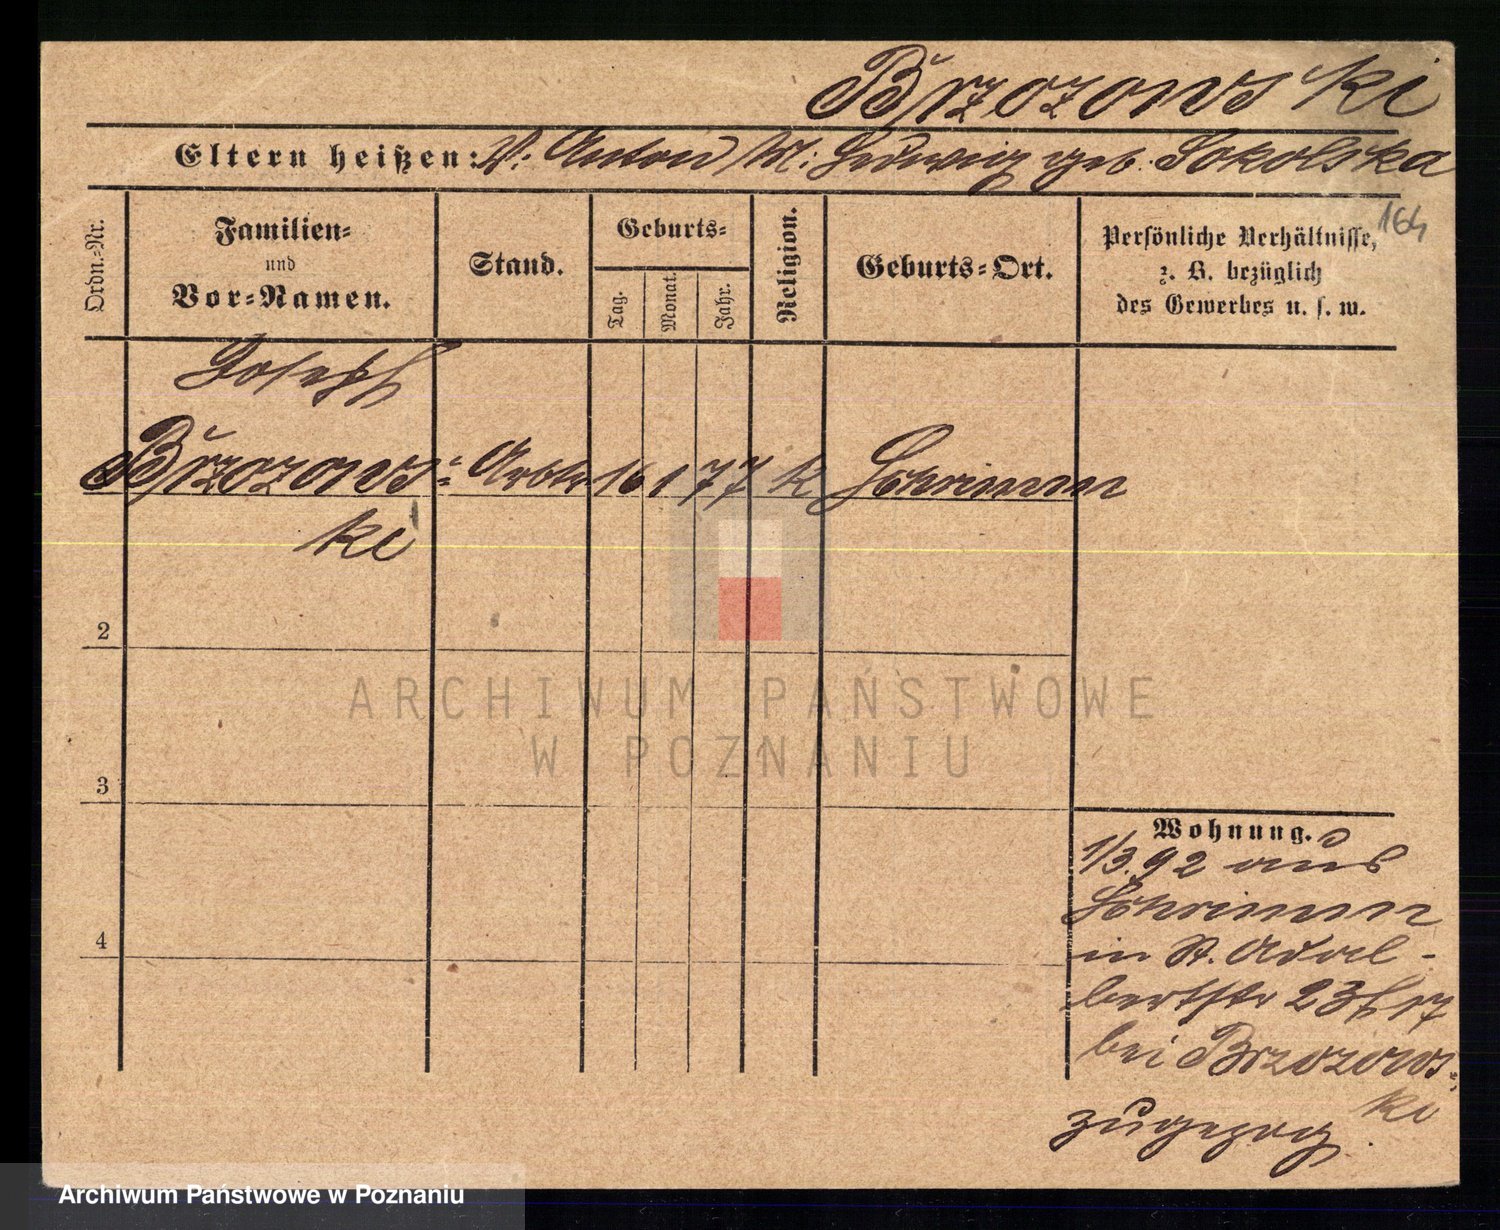 Brzozowski
Eltern heißen: V: Anton M: Hedwig geb. Sokolska
164
Ordn.-Nr.
Familien-
und
Vor-Namen.
Stand.
Geburts-
Tag.
Monat.
Jahr.
Religion.
Geburts-Ort.
Persönliche Verhältnisse,
z. B. bezüglich
des Gewerbes u. s. w.
Joseph
Brzozows- Arbtr 16 1 77 k Schrimm
ki
2
3
4
Wohnung.
1/3.92 aus
Schrimm
in St. Adal-
bertstr 23/17
bei Brzozows-
ki
zugezog.
ARCHIWUM PAŃSTWOWE
W POZNANIU
Archiwum Państwowe w Poznaniu